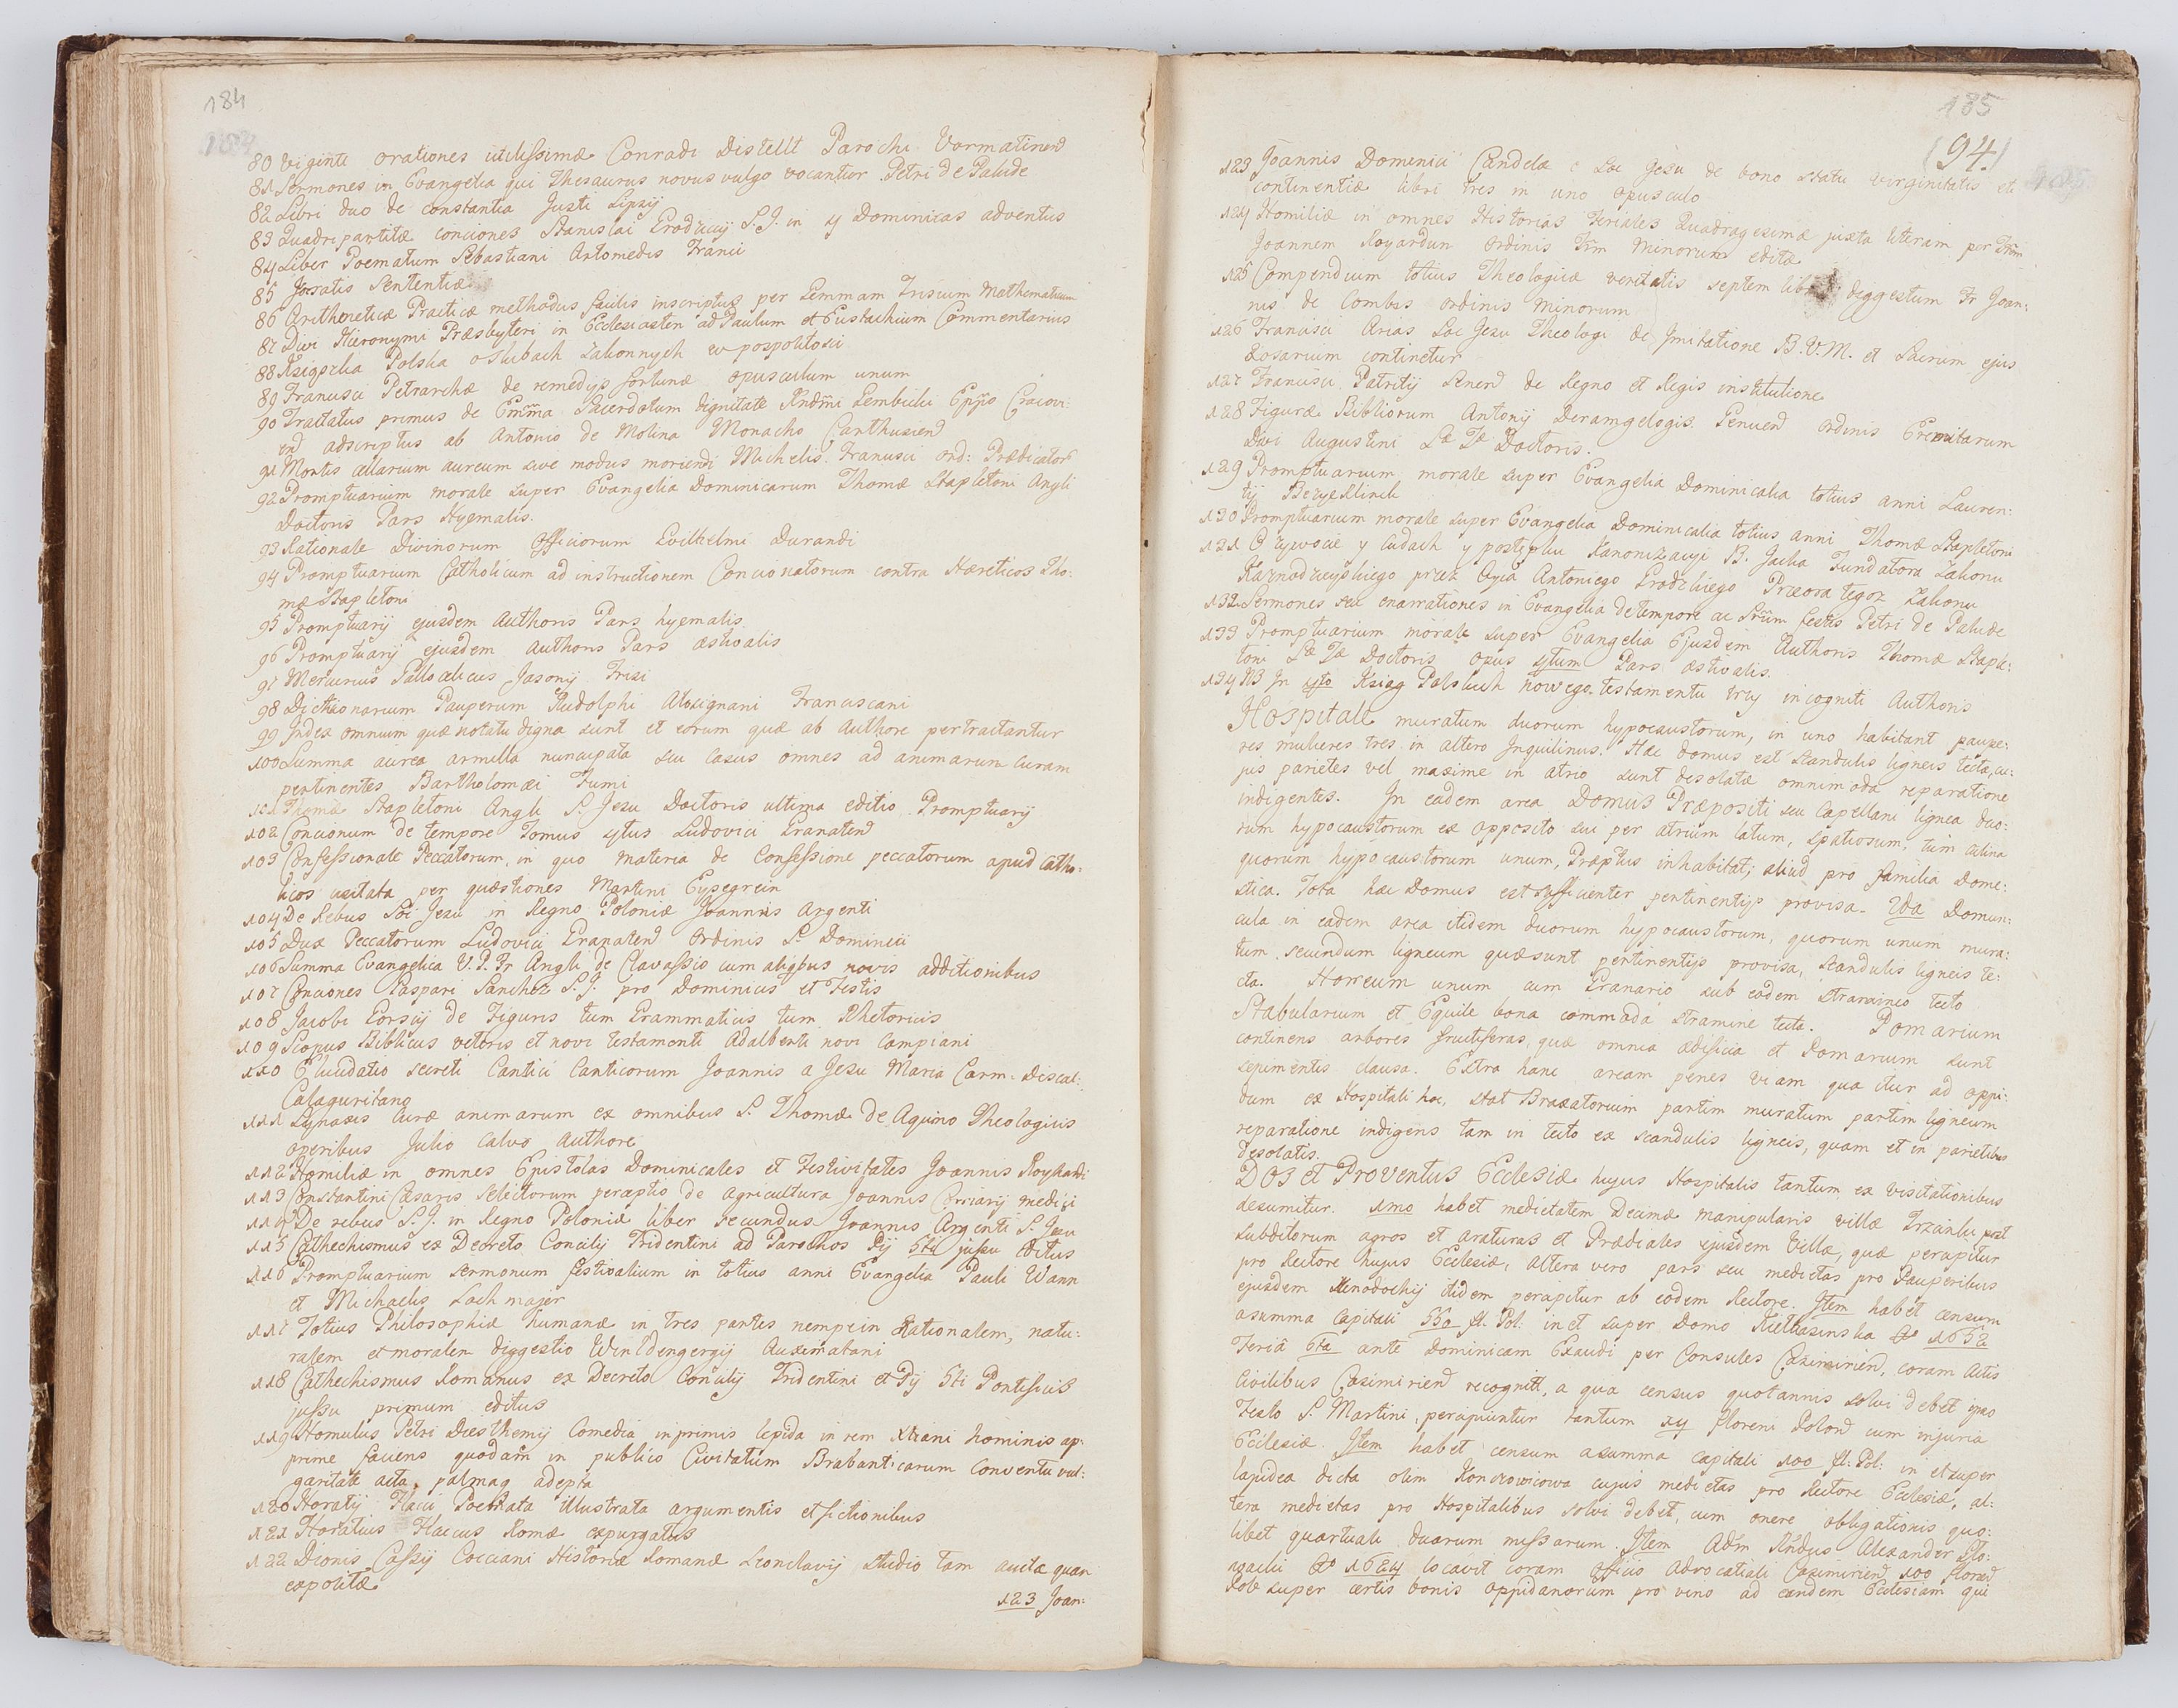 184
80 Viginti orationes utilissimæ Conradi Distellt Parochi Vormatinen
81 Sermones in Evangelia qui Thesaurus novus vulgo vocantur Petri de Palude
82 Libri duo de constantia Justi Lipsij
83 Quadripartitæ conciones Stanislai Grodzicij S.J. in 4 Dominicas adventus
84 Liber Poematum Sebastiani Artomedis Franci
85 Socratis Sententiæ
86 Arithmeticæ Practicæ methodus facilis inscriptus per Gemmam Frisium Mathematicum
87 Divi Hieronymi Præsbyteri in Ecclesiasten ad Paulum et Eustachium Commentarius
88 Ksigożlia Polska o Slubach Zakonnych w pospolitosci
89 Francisci Petrarchæ de remedijs fortunæ opusculum unum
90 Tractatus primus de Emma Sacerdotum dignitate Rndmi Gembicki Eppo Cracovi:
en adscriptus ab Antonio de Molina Monacho Carthusien
91 Mortis cellarium aureum sive modus moriendi Michelis Francisci ord: Prædicator
92 Promptuarium morale super Evangelia Dominicarum Thomæ Stapletoni Angli
Doctoris Pars Hyemalis.
93 Rationale Divinorum Officiorum Guilhelmi Durandi
94 Promptuarium Catholicum ad instructionem Concionatorum contra Hæreticos Tho:
mæ Stapletoni
95 Promptuarij ejusdem Authoris Pars hyemalis
96 Promptuarij ejusdem Authoris Pars æstivalis
97 Mercurius Gallobelicus Jasonij Frisi
98 Dictionarium Pauperum Rudolphi Aloxignani Franciscani
99 Index omnium quæ notatu digna sunt et eorum quæ ab Authore pertractantur
100 Summa aurea armilla nuncupata seu casus omnes ad animarum curam
pertinentes Bartholomæi Fumi
101 Thomæ Stapletoni Angli S. Jesu Doctoris ultima editio Promptuarij
102 Concionum de tempore Tomus 4tus Ludovici Granaten
103 Confessionale Peccatorum, in quo materia de Confessione peccatorum apud Catho:
licos usitata per quæstiones Martini Eysegrein
104 De Rebus Soc Jesu in Regno Poloniæ Joannis Argenti
105 Dux Peccatorum Ludovici Granaten Ordinis S. Dominici
106 Summa Evangelica V.P. Fr Angli de Clavassio cum aliqbus novis additionibus
107 Conciones Gaspari Sanchez S.J. pro Dominicis et Festis
108 Jacobi Gorscij de Figuris tum Grammaticis tum Rhetoricis
109 Scopus Biblicus veteris et novi testamenti Adalberti novi Campiani
110 Elucidatio secreti Cantici Canticorum Joannis a Jesu Maria Carm. Discal:
Calaguritano
111 Synaxis curæ animarum ex omnibus S. Thomæ de Aquino Theologicis
operibus Julio Calvo Authore
112 Homiliæ in omnes Epistolas Dominicales et Festivitates Joannis Roykardi
113 Constantini Cæsaris selectorum perceptio de agricultura Joannis Cerriarij medici
114 De rebus S.J. in Regno Poloniæ liber secundus Joannis Argenti S. Jesu
115 Cathechismus ex Decreto Concilij Tridentini ad Parochos Pij 5ti jussu Editus
116 Promptuarium sermonum festivalium in totius anni Evangelia Pauli Wann
et Michaelis Lochmajer
117 Totius Philosophiæ humanæ in tres partes nempe in Rationalem, natu:
ralem et moralem diggestio Winldengergij Auximatani
118 Cathechismus Romanus ex Decreto Concilij Tridentini et Pij 5ti Pontificis
jussu primum editus
119 Homulus Petri Diesthemij Comedia in primis lepida in rem Xtiani hominis ap:
prime faciens quodam in publico Civitatum Brabanticarum Conventu vul:
garitate acta, palmaq adepta
120 Horatij Flacci Poemata illustrata argumentis et fictionibus
121 Horatius Flaccus Romæ expurgatus
122 Dionis Cassij Cocciani Historiæ Romanæ Leonclavij studio tam auctæ quan
expolitæ
123 Joan:
185
(94)
123 Joannis Dominici Candelæ e Soc Jesu de bono statu virginitatis et
continentiæ libri tres in uno opusculo
124 Homiliæ in omnes Historias Feriales Quadragesimæ juxta literam per Frem
Joannem Royardun Ordinis Frm Minorum editæ
125 Compendium totius Theologicæ veritatis septem diggestum Fr Joan:
nis de Combis ordinis Minorum
126 Francisci Arias Soc Jesu Theologi de Imitatione B.V.M. et Sacrum ejus
Rosarium continetur
127 Francisci Patritij Senen de Regno et Regis institutione
128 Figuræ Bibliorum Antonij Derampelogis Genuen Ordinis Eremitarum
Divi Augustini Sæ Tæ Doctoris.
129 Promptuarium morale super Evangelia Dominicalia totius anni Lauren:
tij Beyerlinck
130 Promptuarium morale super Evangelia Dominicalia totius anni Thomæ Stapletoni
131 O zywocie y cudach y postępku Kanonizacyi B. Jacka Fundatora Zakonu
Kaznodzieyskiego przez Oyca Antoniego Grodzkiego Przeora tegoz Zakonu
132 Sermones seu enarrationes in Evangelia de tempore ac Srum festis Petri de Palude
133 Promptuarium morale super Evangelia Ejusdem Authoris Thomæ Staple:
toni Sæ Tæ Doctoris opus 4tum Pars æstivalis.
134 NB In 4to Ksiąg Polskich nowego testamentu trzy incogniti Authoris
Hospitale muratum duorum hypocaustorum, in uno habitant paupe:
res mulieres tres in altero Inquilinus. Hæc domus est scandulis ligneis tecta, cu:
jus parietes vel maxime in atrio sunt desolatæ omnimoda reparatione
indigentes. In eadem area Domus Præpositi seu Capellani lignea duo:
rum hypocaustorum ex opposito sui per atrium latum, spatiosum, tum culina
quorum hypocaustorum unum, Præptus inhabitat, aliud pro familia Dome:
stica. Tota hæc Domus est sufficienter pertinentijs provisa. 2da Domun:
cula in eadem area itidem duorum hypocaustorum, quorum unum mura:
tum, secundum ligneum quæ sunt pertinentijs provisa, scandulis ligneis te:
cta. Horreum unum cum Granario sub eodem stramineo tecto
Stabularium et Equile bona commoda stramine tecta. Pomarium
continens arbores fructiferas, quæ omnia ædificia et Pomarium sunt
sepimentis clausa. Extra hanc aream penes viam qua itur ad oppi:
dum ex Hospitali hoc, stat Braxatorium partim muratum partim ligneum
reparatione indigens tam in tecto ex scandulis ligneis, quam et in parietibus
desolatis.
Dos et Proventus Ecclesiæ hujus Hospitalis tantum ex visitationibus
desumitur. 1mo habet medietatem Decimæ manipularis villæ Trzcinki præt
subditorum agros et araturas et Prædiales ejusdem Villæ, quæ percipitur
pro Rectore hujus Ecclesiæ, altera vero pars seu medietas pro Pauperibus
ejusdem Xenodochij itidem percipitur ab eodem Rectore. Item habet censum
a summa Capitali 550 fl. Pol: in et super Domo Kiełkasinska Ao 1652
Feria 6ta ante Dominicam Exaudi per Consules Casimirien, coram Actis
Civilibus Casimirien recognit, a qua census quotannis solvi debet ipso
Festo S. Martini, percipiuntur tantum 14 floreni Polon cum injuria
Ecclesiæ. Item habet censum a summa capitali 100 fl: Pol: in et super
lapidea dicta olim Konczowiczowa cujus medietas pro Rectore Ecclesiæ, al:
tera medietas pro Hospitalibus solvi debet, cum onere obligationis quo:
libet quartuali duarum missarum. Item Adm Rndus Alexander Sto:
nzacki Ao 1624 locavit coram officio Advocatiali Casimirien 100 floren
Pol super certis bonis oppidanorum pro vino ad eandem Ecclesiam qui